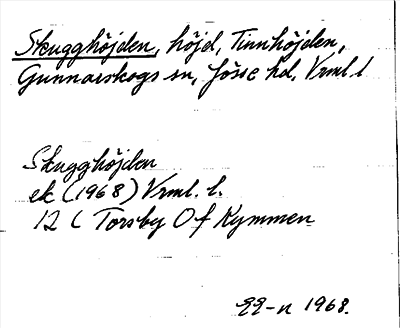 Skugghöjden, höjd, Tinnhöjden,
Gunnarskogs sn, Jösse hd, Vrml. l
Skugghöjden
ek (1968) Vrml. l.
12 C Torsby Of Kymmen
1968.